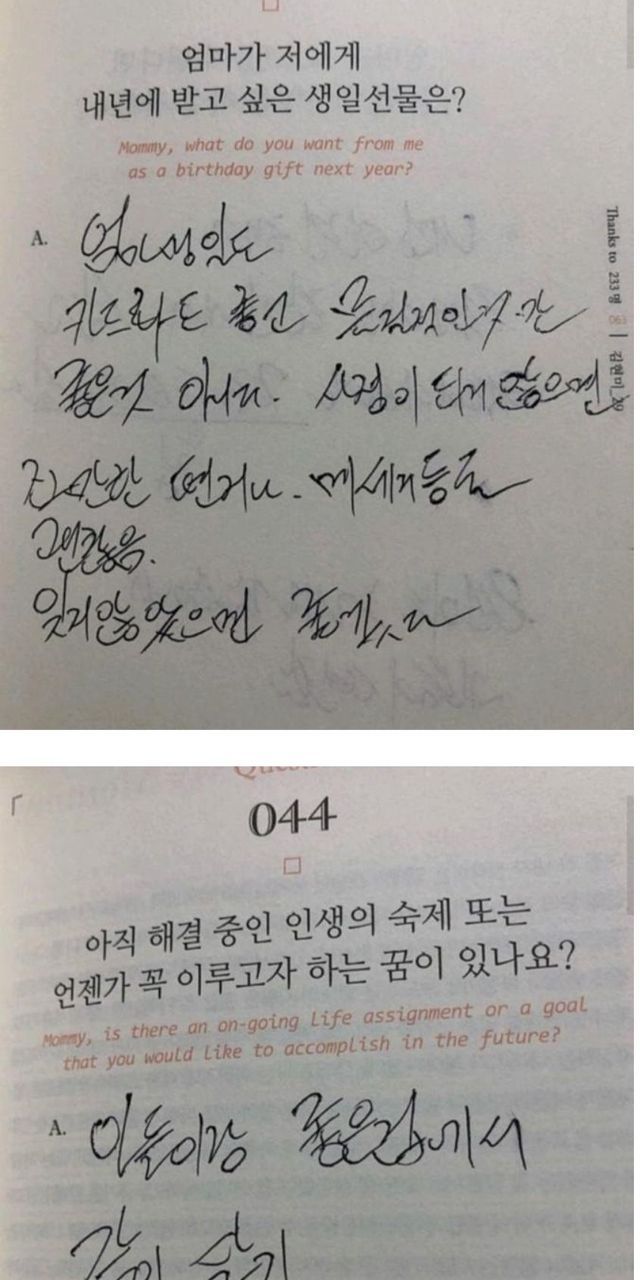 엄마가 저에게
내년에 받고 싶은 생일선물은?
Mommy, what do you want from me
as a birthday gift next year?
A. 엄마생일도
카드라도 좋고 물질적인것만
좋은것 아니다. 사정이 되지 않으면
간단한 편지나. 메세지등도
괜찮음.
잊지않았으면 좋겠다
Thanks to 233명 063 | 김현미
Quest
044
아직 해결 중인 인생의 숙제 또는
언젠가 꼭 이루고자 하는 꿈이 있나요?
Mommy, is there an on-going life assignment or a goal
that you would like to accomplish in the future?
A. 아들이랑 좋은집에서
같이 살기